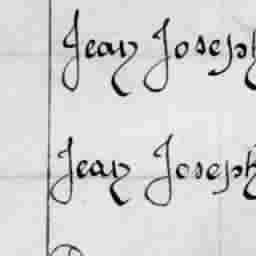 Jean Joseph
Jean Joseph